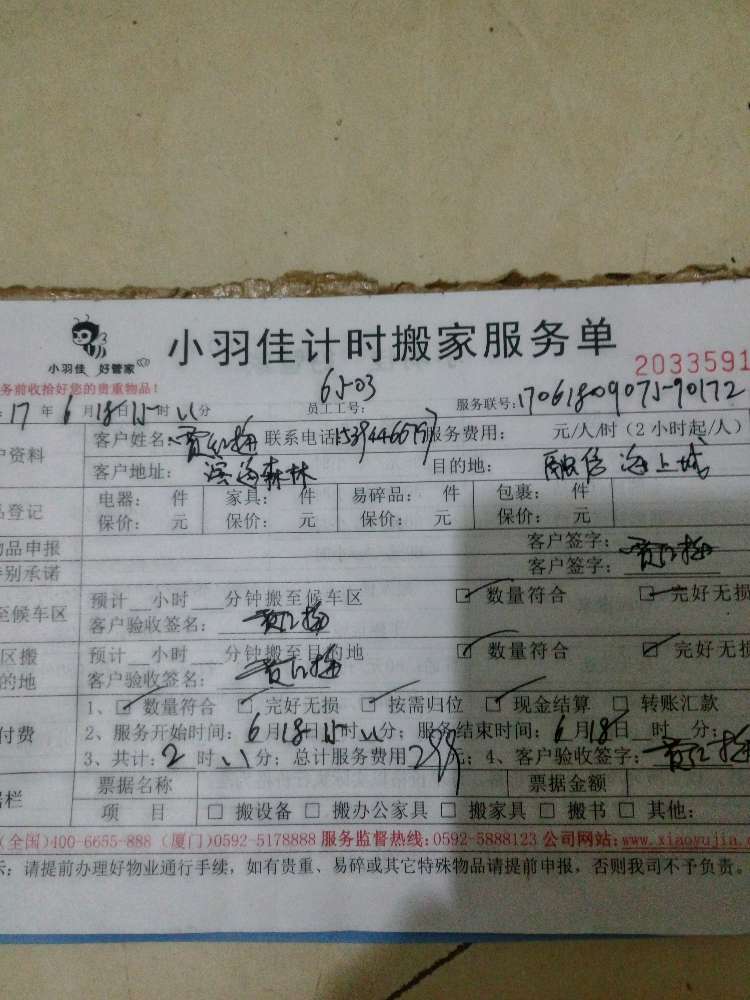 小羽佳 好管家
小羽佳计时搬家服务单
2033591
务前收拾好您的贵重物品！
6503
: 17 年 6 月 18 日 15 时 分 员工工号: 服务联号: 170618090715-90172
户资料 客户姓名: 联系电话 服务费用: 元/人/时（2小时起/人）
客户地址: 滨海森林 目的地: 融信海上城
品登记 电器: 件 家具: 件 易碎品: 件 包裹: 件
保价: 元 保价: 元 保价: 元 保价: 元
物品申报 客户签字:
特别承诺 客户签字:
至候车区 预计__小时__分钟搬至候车区 数量符合 完好无损
客户验收签名:
区搬 预计__小时__分钟搬至目的地 数量符合 完好无损
的地 客户验收签名:
1、 数量符合 完好无损 按需归位 现金结算 □ 转账汇款
付费 2、服务开始时间: 6 月 18 日 15 时 分; 服务结束时间: 6 月 18 日 时 分;
3、共计: 2 时 分; 总计服务费用 元; 4、客户验收签字:
据栏 票据名称 票据金额
项 目 □ 搬设备 □ 搬办公家具 □ 搬家具 □ 搬书 □ 其他:
(全国)400-6655-888 (厦门)0592-5178888 服务监督热线:0592-5888123 公司网站:www.xiaoyujia.c
示: 请提前办理好物业通行手续，如有贵重、易碎或其它特殊物品请提前申报，否则我司不予负责。